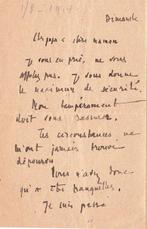 1/8 - 1914
Dimanche
Cher papa & chère maman
Je vous en prie, ne vous
affolez pas. Je vous donne
le maximum de sécurité.
Mon tempérament
doit vous rassurer.
Les circonstances ne
m'ont jamais trouvé
dépourvu
Vous n'avez donc
qu'à être tranquilles.
Je suis